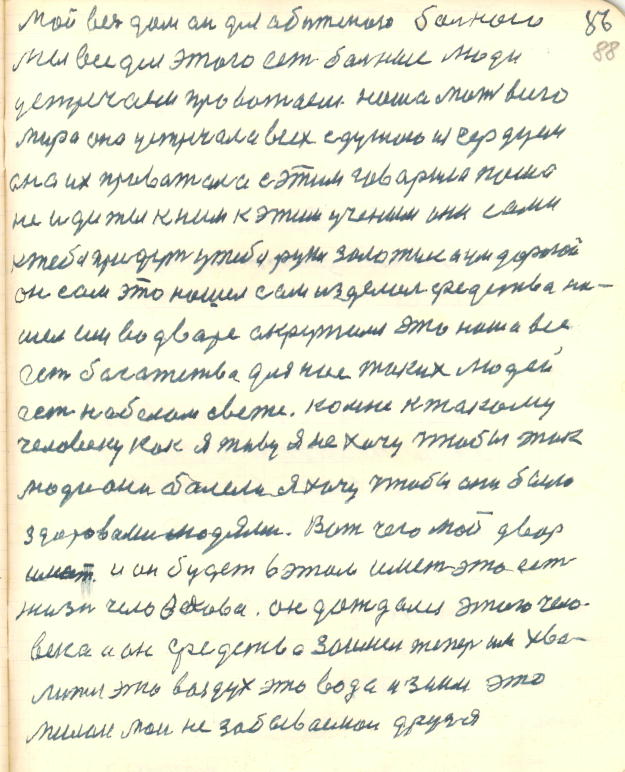 мой вех дом он для абиженогоболного 86
88
мы все для этого ест болные люди
устречаем провожаем. наша мат в иго
мира она устречала всех с душою и серцем
она их проважала с этим говарила паша
не иди ты к ним к этим ученым они сами
к тебе придут у тебя руки золотые а ум дорогой
он сам это нашел сам изделал средства на-
шел им во дваре окружили это наша все
ест багатства для нас таких людей
ест на белом свете. ко мне к такому
человеку как я живу я не хочу чтобы так
люди они балели я хочу чтобы они были
здоровами людями. Вот чего мой двор
имеет и он будет в этом имет это ест
жизн человекова. он дождался этого чело-
века и он средства занел тепер им хва-
литы это воздух это вода и земля это
милаи мои не забываемои друзя